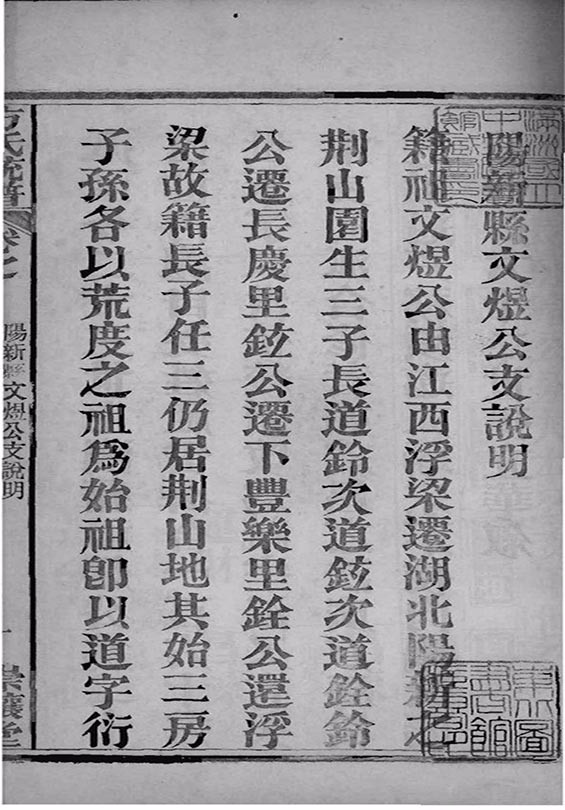 陽新縣文煜公支說明
籍祖文煜公由江西浮梁遷湖北陽新之
荆山園生三子長道鈴次道鉉次道銓鈴
公遷長慶里鉉公遷下豐樂里銓公還浮
梁故籍長子任三仍居荆山地其始三房
子孫各以荒度之祖爲始祖卽以道字衍
方氏統譜
陽新縣文煜公支說明
一
崇讓堂